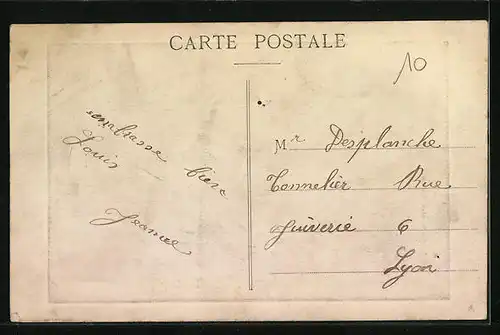 CARTE POSTALE
10
embrasse bien
Louis
Jeanne
Mr Desplanche
Tonnelier Rue
Juiverie 6
Lyon